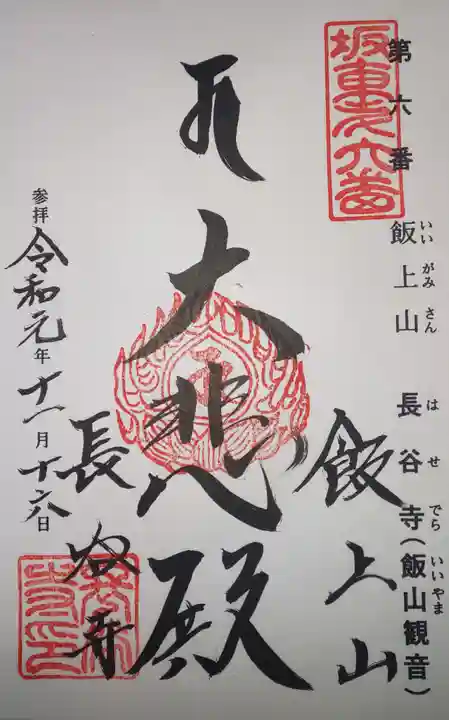 第六番 飯上山 長谷寺（飯山観音）
いいがみさん はせでら いいやま
坂東第六番
飯上山
大悲殿
長谷寺
参拝 令和元年十一月十六日